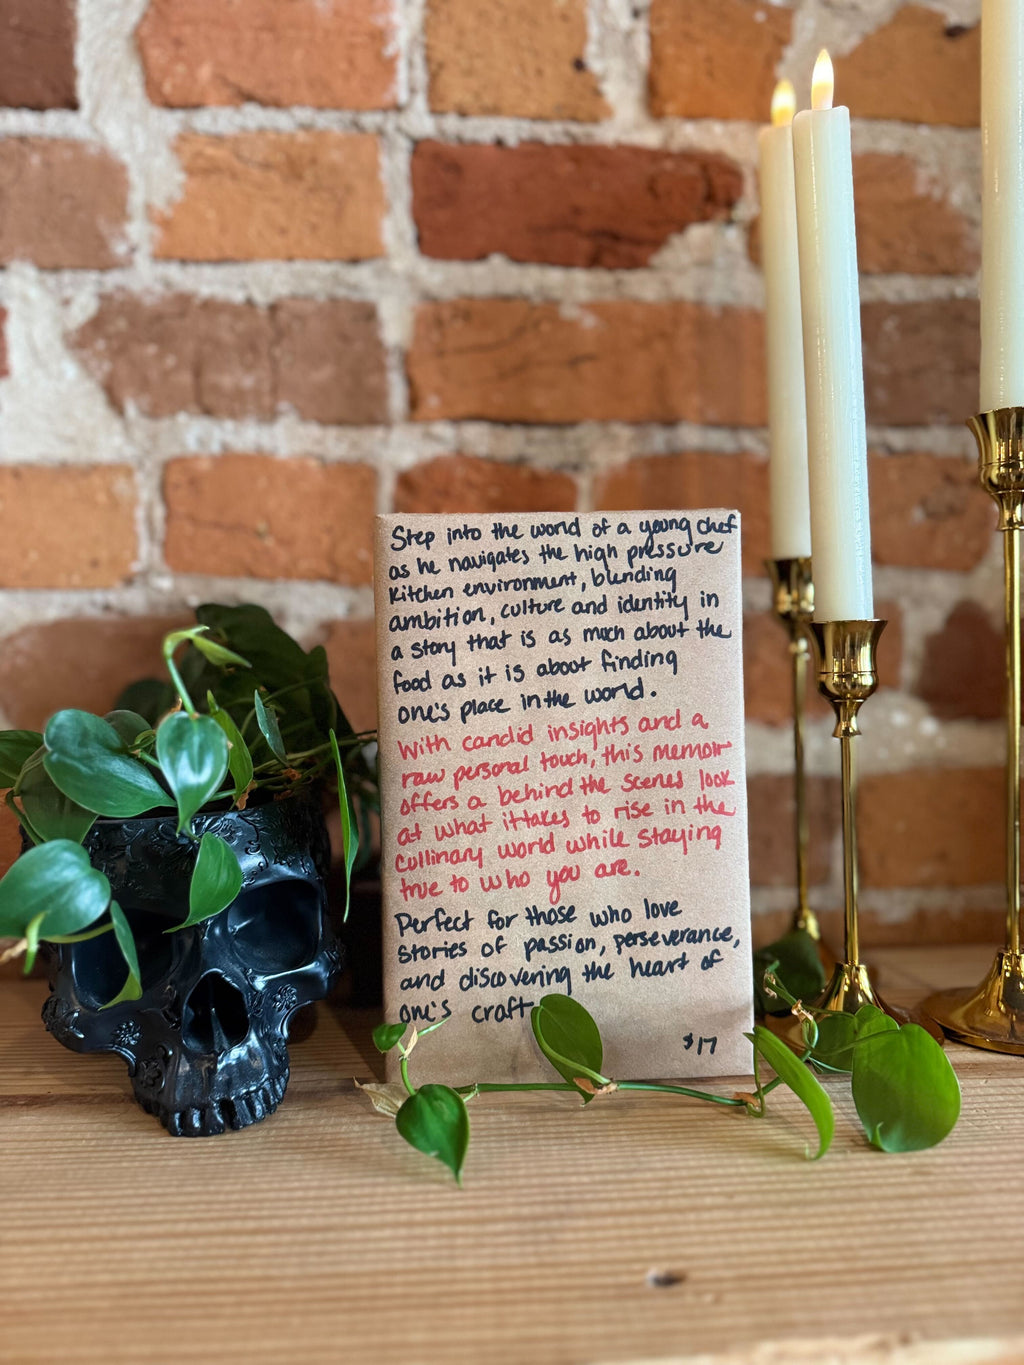 Step into the world of a young chef
as he navigates the high pressure
kitchen environment, blending
ambition, culture and identity in
a story that is as much about the
food as it is about finding
one's place in the world.
With candid insights and a
raw personal touch, this memoir
offers a behind the scenes look
at what it takes to rise in the
Cullinary world while staying
true to who you are.
Perfect for those who love
stories of passion, perseverance,
and discovering the heart of
one's craft
$17